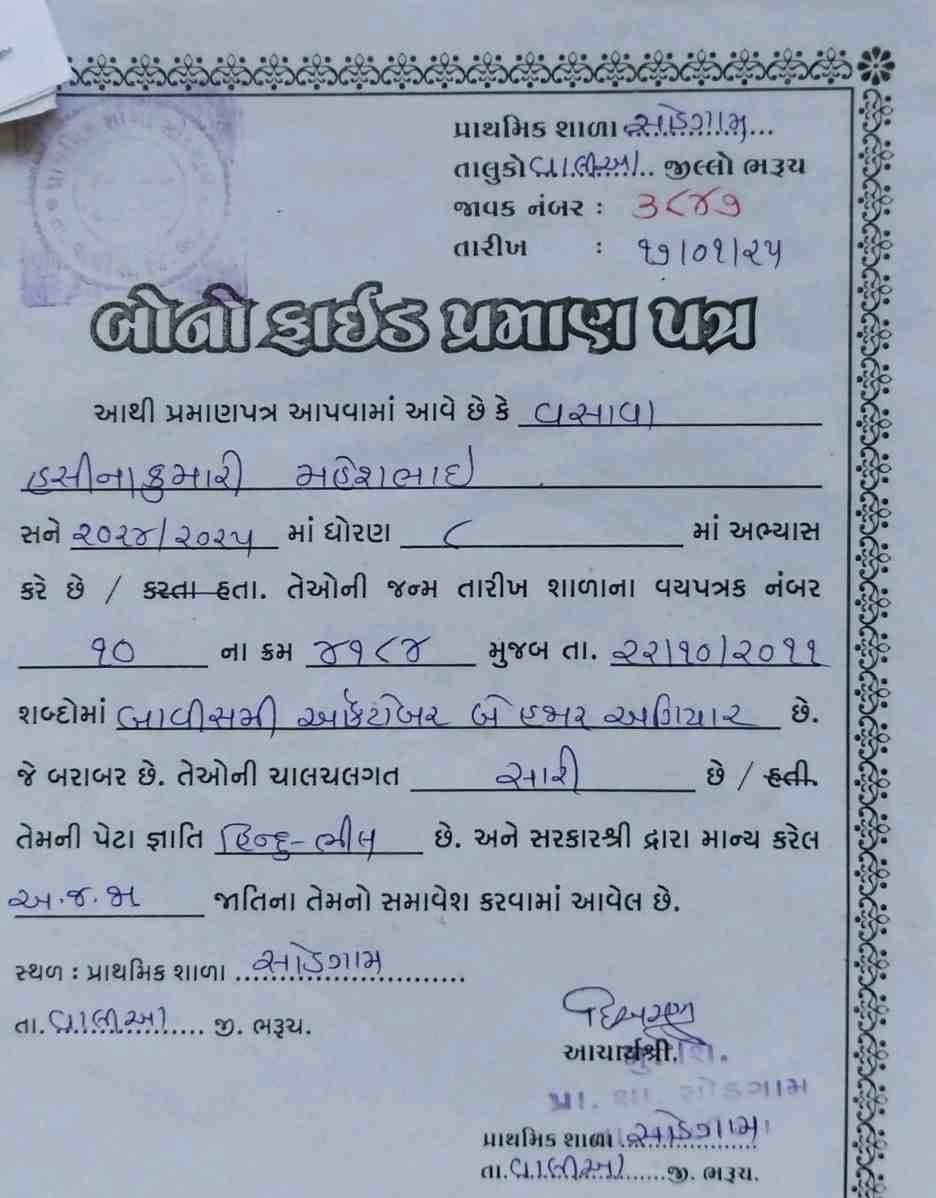 પ્રાથમિક શાળા સોડગામ
તાલુકો વાલીઆ જીલ્લો ભરૂચ
જાવક નંબર : ૩૮૪૭
તારીખ : ૧૭/૦૧/૨૫
બોનોફાઈડ પ્રમાણ પત્ર
આથી પ્રમાણપત્ર આપવામાં આવે છે કે વસાવા
હસીનાકુમારી મહેશભાઇ
સને ૨૦૨૪/૨૦૨૫ માં ધોરણ ૮ માં અભ્યાસ
કરે છે / કરતા હતા. તેઓની જન્મ તારીખ શાળાના વયપત્રક નંબર
૧૦ ના ક્રમ ૪૧૮૪ મુજબ તા. ૨૨/૧૦/૨૦૧૧
શબ્દોમાં બાવીસમી ઓક્ટોબર બે હજાર અગિયાર છે.
જે બરાબર છે. તેઓની ચાલચલગત સારી છે / હતી.
તેમની પેટા જ્ઞાતિ હિન્દુ-ભીલ છે. અને સરકારશ્રી દ્વારા માન્ય કરેલ
અ.જ.જા જાતિના તેમનો સમાવેશ કરવામાં આવેલ છે.
સ્થળ : પ્રાથમિક શાળા સોડગામ
તા. વાલીઆ જી. ભરૂચ.
આચાર્યશ્રી.
પ્રા. શા. સોડગામ
પ્રાથમિક શાળા સોડગામ
તા. વાલીઆ જી. ભરૂચ.